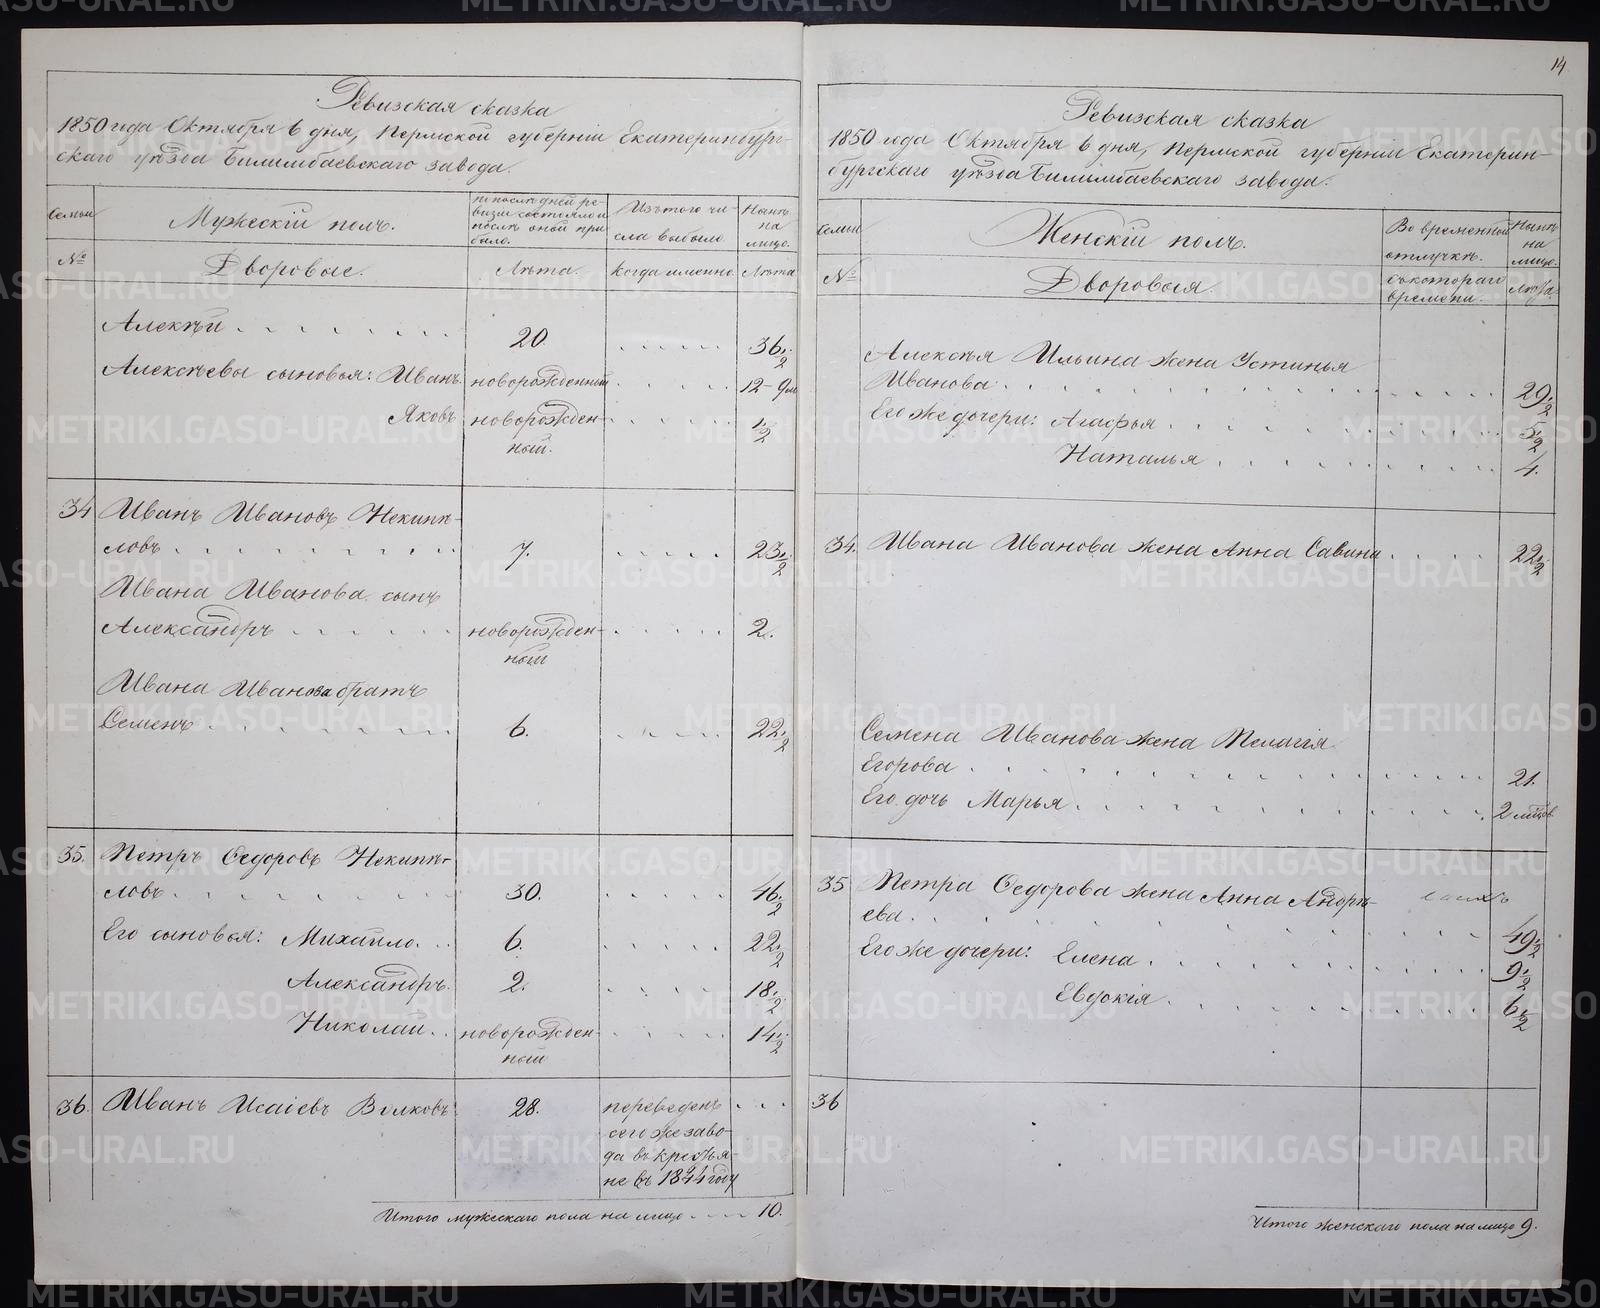 Ревизская сказка
1850 года Октября 6 дня, Пермской губернiи Екатеринбург-
скаго уѣзда Билимбаевскаго завода.
Семьи
Мужескiй полъ.
по послѣдней ре-
визiи состояло и
послѣ оной при
было.
Изъ того чи-
сла выбыло
Нынѣ
на
лицо.
№
Дворовые.
Лѣта.
Когда именно.
Лѣта
Алексѣй
20.
36 1/2
Алексѣевы сыновья: Иванъ
новорожденный
12 - 9 м
Яковъ
новорожден-
ный.
1/2
34
Иванъ Ивановъ Некипѣ-
ловъ
7.
23 1/2
Ивана Иванова сынъ
Александръ
новорожден-
ный
2.
Ивана Иванова братъ
Семенъ
6.
22 1/2
35.
Петръ Ѳедоровъ Некипѣ-
ловъ
30.
46 1/2
Его сыновья: Михайло.
6.
22 1/2
Александръ.
2.
18 1/2
Николай.
новорожден-
ный
14 1/2
36.
Иванъ Исаiевъ Волковъ
28.
переведенъ
сего же заво-
да въ крестья-
не въ 1844 году
Итого мужескаго пола на лицо 10.
14
Ревизская сказка
1850 года Октября 6 дня, Пермской губернiи Екатерин-
бургскаго уѣзда Билимбаевскаго завода.
Семьи
Женскiй полъ.
Во временной
отлучкѣ.
Нынѣ
на
лицо.
№
Дворовыя.
съ котораго
времени.
Лѣта.
Алексѣя Ильина жена Устинья
Иванова
29 1/2
Его же дочери: Агафья
5 1/2
Наталья
4.
34.
Ивана Иванова жена Анна Савина
22 1/2
Семена Иванова жена Пелагiя
Егорова
21.
Его дочь Марья
2 мѣсяцов
35
Петра Ѳедорова жена Анна Андрѣ-
ева
49 1/2
Его же дочери: Елена
9 1/2
Евдокiя
6 1/2
36
Итого женскаго пола на лицо 9.
METRIKI.GASO-URAL.RU